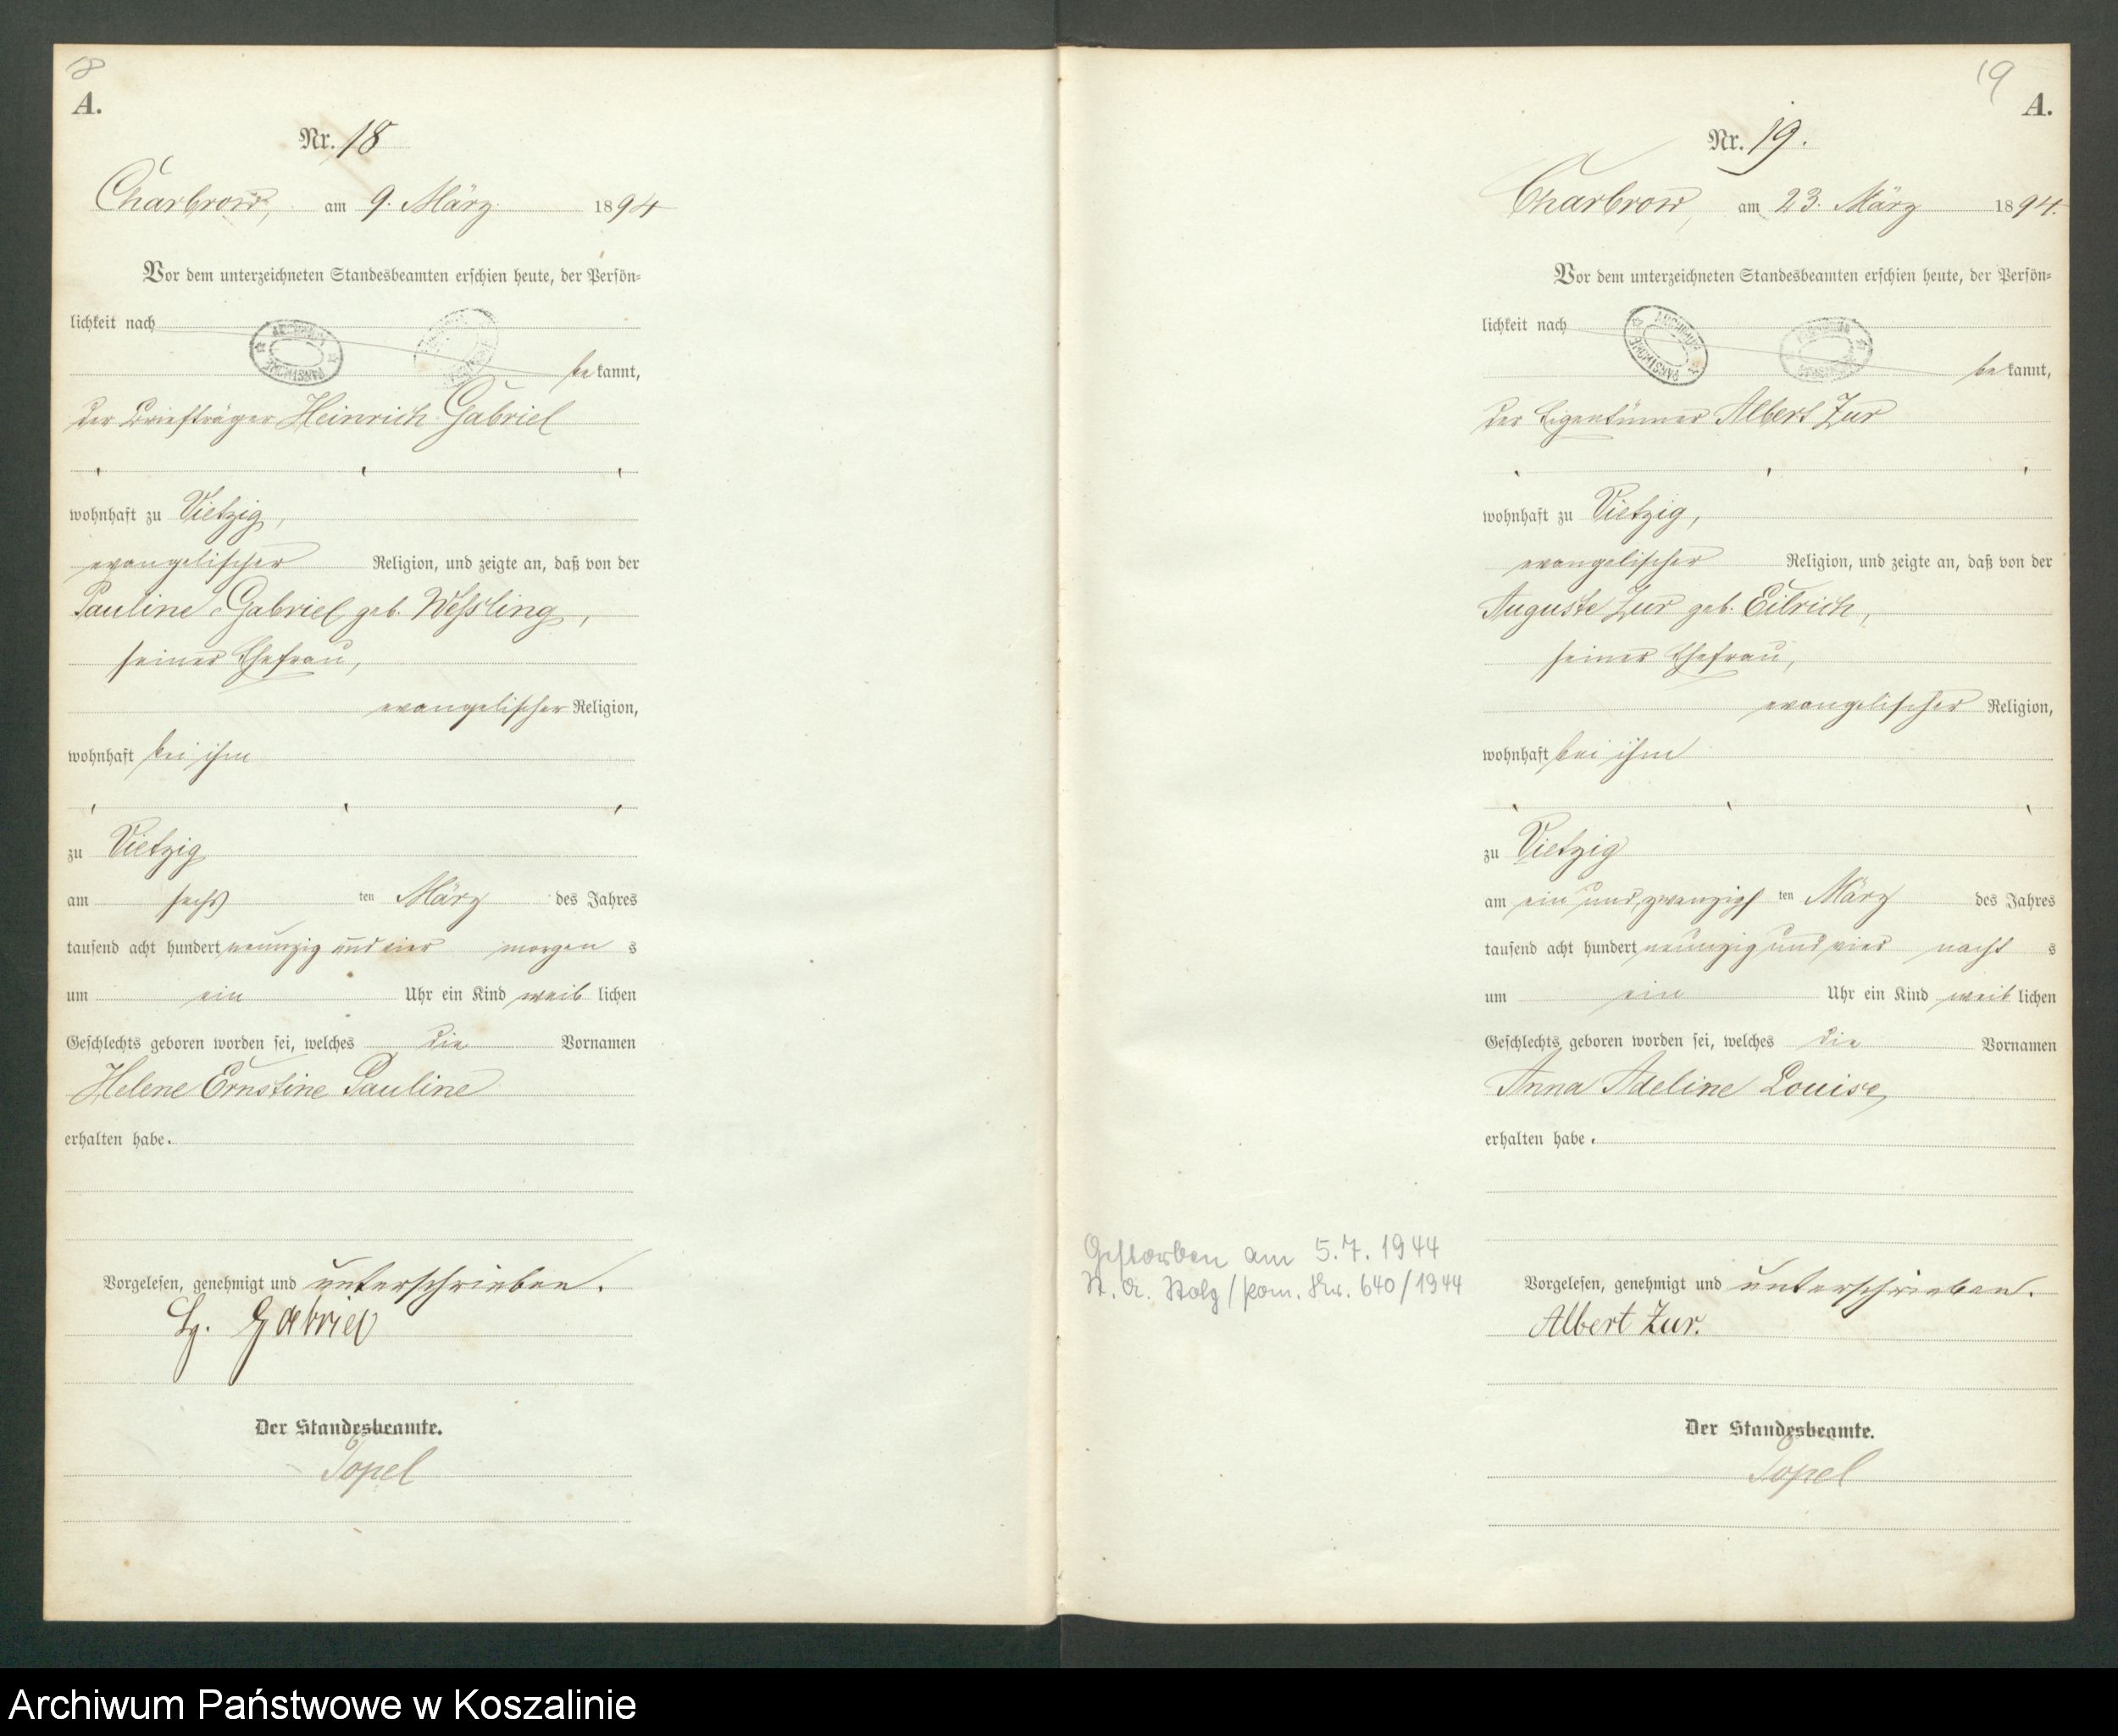 18
A.
Nr. 18
Charbrow, am 9. März 1894
Vor dem unterzeichneten Standesbeamten erschien heute, der Persön-
lichkeit nach
bekannt,
der Briefträger Heinrich Gabriel
wohnhaft zu Vietzig,
evangelischer Religion, und zeigte an, daß von der
Pauline Gabriel geb. Weßling,
seiner Ehefrau,
evangelischer Religion,
wohnhaft bei ihm
zu Vietzig
am sechsten März des Jahres
tausend acht hundert neunzig und vier morgens
um ein Uhr ein Kind weiblichen
Geschlechts geboren worden sei, welches die Vornamen
Helene Ernstine Pauline
erhalten habe.
Vorgelesen, genehmigt und unterschrieben.
Gabriel
Der Standesbeamte.
Topel
19
A.
Nr. 19.
Charbrow, am 23. März 1894.
Vor dem unterzeichneten Standesbeamten erschien heute, der Persön-
lichkeit nach
bekannt,
der Eigentümer Albert Zur
wohnhaft zu Vietzig,
evangelischer Religion, und zeigte an, daß von der
Auguste Zur geb. Eilrich,
seiner Ehefrau,
evangelischer Religion,
wohnhaft bei ihm
zu Vietzig
am ein und zwanzigsten März des Jahres
tausend acht hundert neunzig und vier nachts
um ein Uhr ein Kind weiblichen
Geschlechts geboren worden sei, welches die Vornamen
Anna Adeline Louise
erhalten habe.
Gestorben am 5.7.1944
St. A. Stolp/Pom. Nr. 640/1944
Vorgelesen, genehmigt und unterschrieben.
Albert Zur.
Der Standesbeamte.
Topel
Archiwum Państwowe w Koszalinie